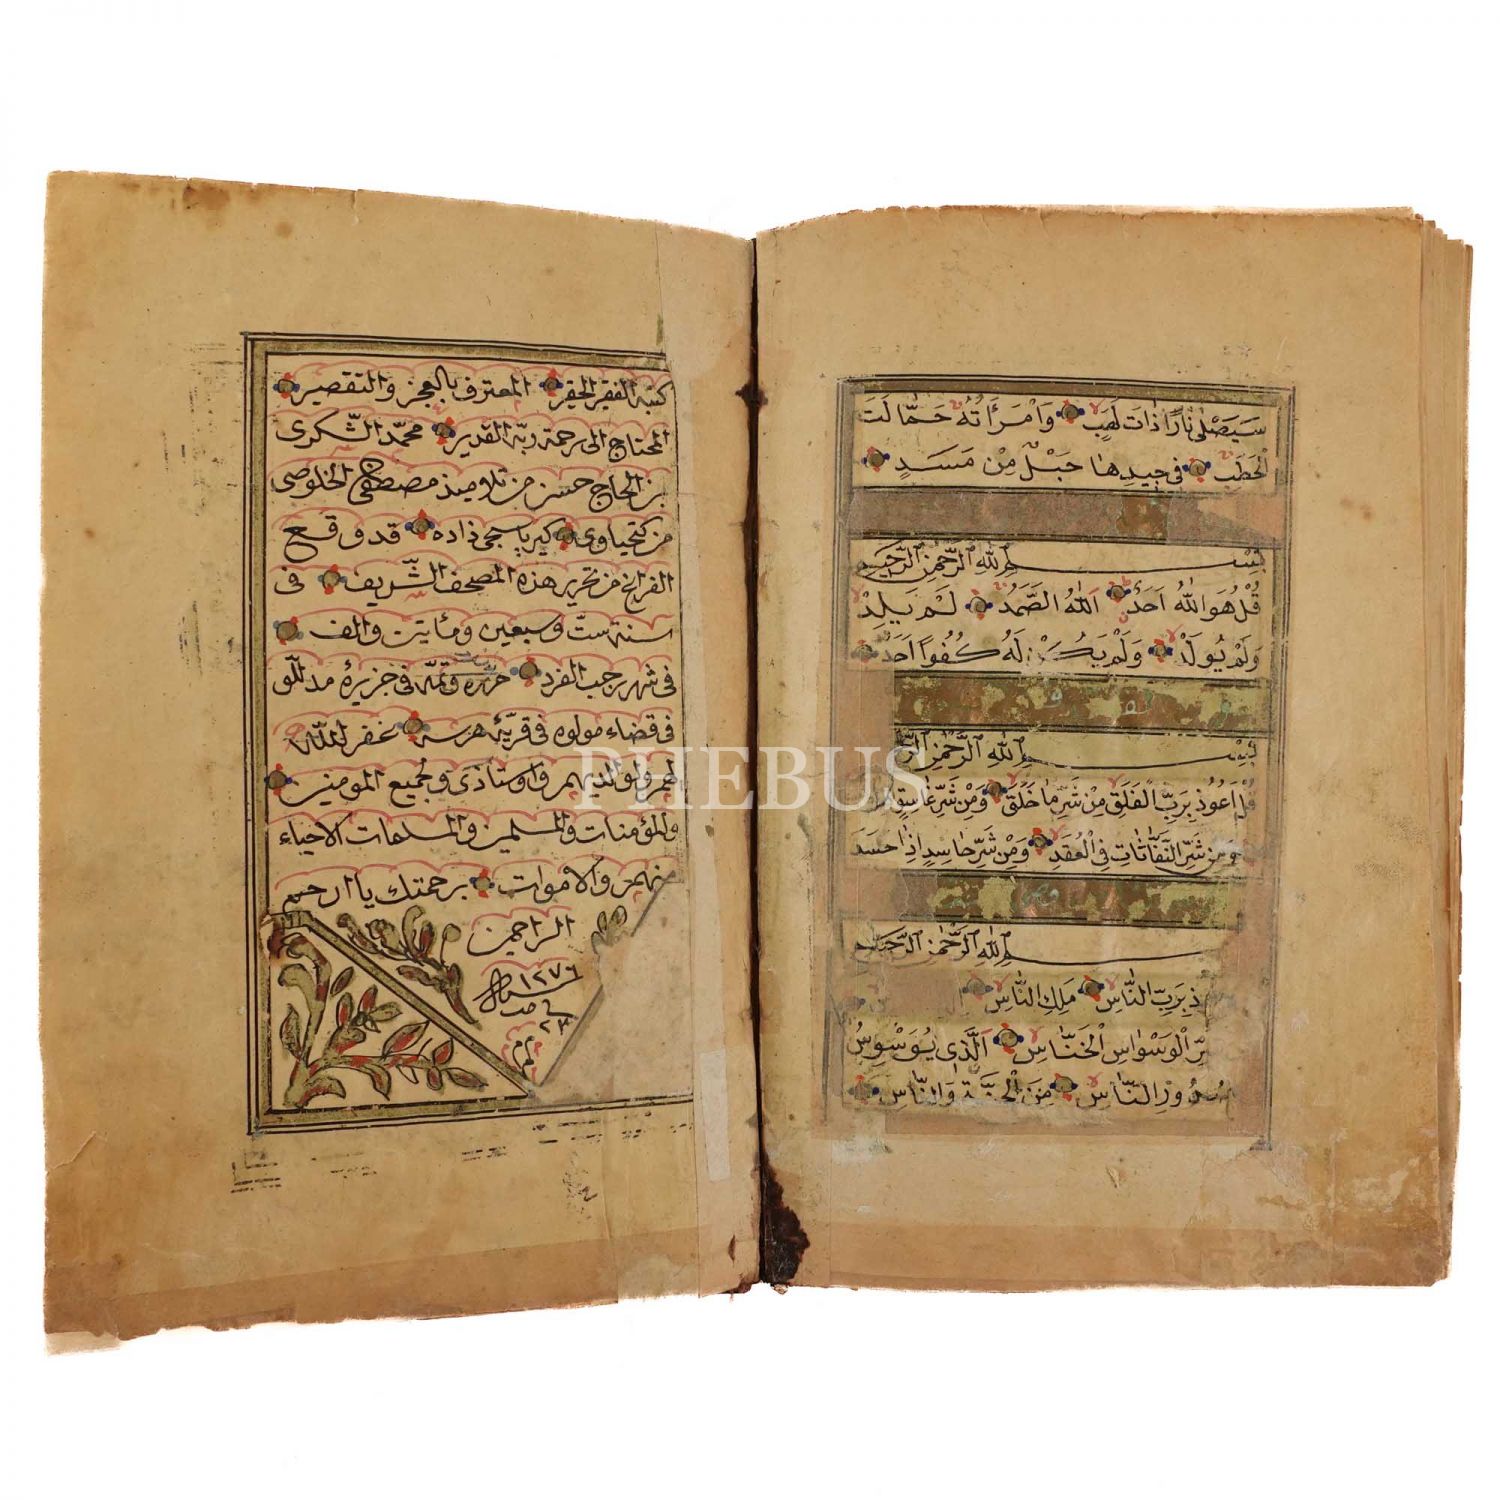 سَيَصْلٰى نَارًا ذَاتَ لَهَبٍ وَامْرَأَتُهُ حَمَّالَتَ
الْحَطَبِ فِى جِيدِهَا حَبْلٌ مِنْ مَسَدٍ
بِسْمِ اللهِ الرَّحْمٰنِ الرَّحِيمِ
قُلْ هُوَ اللهُ اَحَدٌ اَللهُ الصَّمَدُ لَمْ يَلِدْ
وَلَمْ يُولَدْ وَلَمْ يَكُنْ لَهُ كُفُوًا اَحَدٌ
بِسْمِ اللهِ الرَّحْمٰنِ
قُلْ اَعُوذُ بِرَبِّ الْفَلَقِ مِنْ شَرِّ مَا خَلَقَ وَمِنْ شَرِّ غَاسِقٍ
وَمِنْ شَرِّ النَّفَّاثَاتِ فِى الْعُقَدِ وَمِنْ شَرِّ حَاسِدٍ اِذَا حَسَدَ
بِسْمِ اللهِ الرَّحْمٰنِ الرَّحِيمِ
بِرَبِّ النَّاسِ مَلِكِ النَّاسِ
شَرِّ الْوَسْوَاسِ الْخَنَّاسِ اَلَّذِى يُوَسْوِسُ
صُدُورِ النَّاسِ مِنَ الْجِنَّةِ وَالنَّاسِ
كتبه الفقير الحقير المعترف بالعجز والتقصير
المحتاج الى رحمة ربه القدير محمد الشكرى
بن الحاج حسن من تلاميذ مصطفى الخلوصى
من زاده قد وقع
الفراغ من تحرير هذه المصحف الشريف فى
سنة ست وسبعين ومأيتن والف
فى شهر رجب الفرد حرره وتمه فى جزيرة مدللو
فى قضاء مولوه فى قرية هرسه غفر الله
لهم ولوالديهم واوستاذى ولجميع المومنين
والمؤمنات والمسلمين والمسلمات الاحياء
منهم والاموات برحمتك يا ارحم
الراحمين
سنة ١٢٧٦
فى
٢٣
تم
PHEBUS